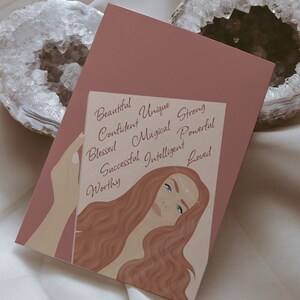 Beautiful
Unique Strong
Confident
Magical Powerful
Blessed
Successful Intelligent
Loved
Worthy